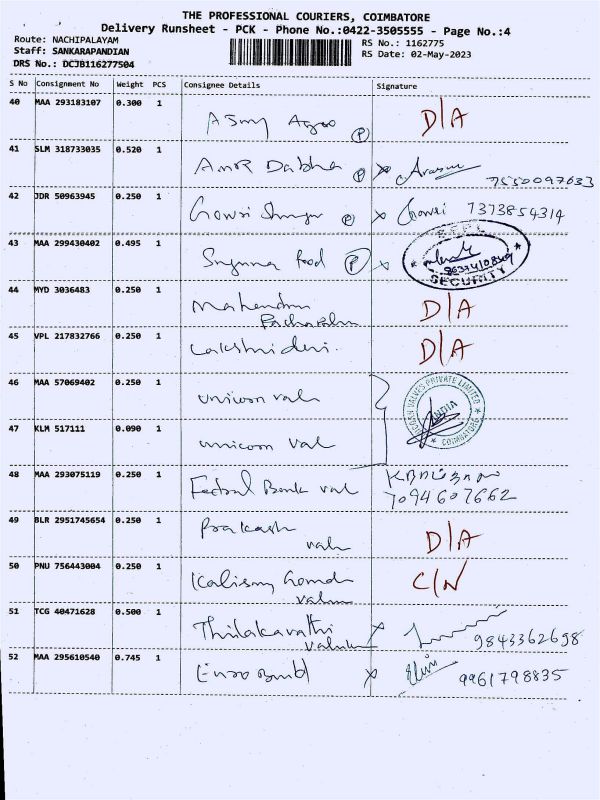 THE PROFESSIONAL COURIERS, COIMBATORE
Delivery Runsheet - PCK - Phone No.:0422-3505555 - Page No.:4
Route: NACHIPALAYAM RS No.: 1162775
Staff: SANKARAPANDIAN RS Date: 02-May-2023
DRS No.: DCJB116277504
S No Consignment No Weight PCS Consignee Details Signature
40 MAA 293183107 0.300 1 D/A
P
41 SLM 318733035 0.520 1
Amor Dabha P x 7550097633
42 JDR 50963945 0.250 1
Gowri P x Gowri 7373854314
43 MAA 299430402 0.495 1
Suguna food P x SECURITY
44 MYD 3036483 0.250 1
Mahendra D/A
Pachapalm
45 VPL 217832766 0.250 1
Lakshmidevi. D/A
46 MAA 57069402 0.250 1
unicorn valv
PRIVATE LIMITED
INDIA
COIMBATORE
47 KLM 517111 0.090 1
unicorn val
48 MAA 293075119 0.250 1
Fedral Bank val 7094607662
49 BLR 2951745654 0.250 1
Prakash
valu D/A
50 PNU 756443004 0.250 1
C/N
valum
51 TCG 40471628 0.500 1
Thilakavathi x
valuku 9843362698
52 MAA 295610540 0.745 1
x 9961798835